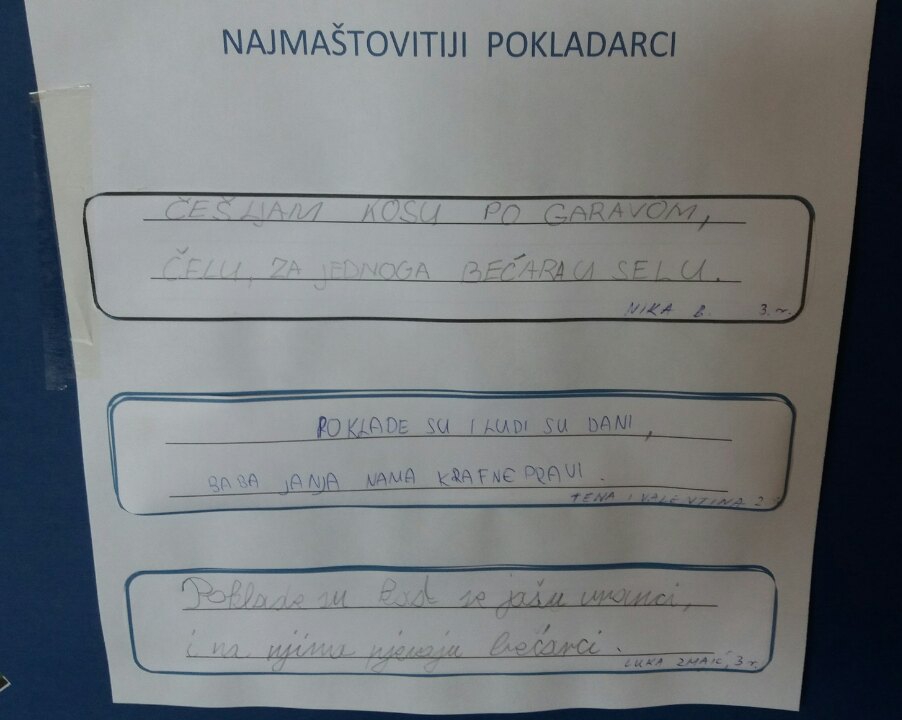 NAJMAŠTOVITIJI POKLADARCI
ČEŠLJAM KOSU PO GARAVOM,
ČELU, ZA JEDNOGA BEĆARA U SELU.
NIKA B. 3. r.
POKLADE SU I LUDI SU DANI,
BABA JANJA NAMA KRAFNE PRAVI.
TENA I VALENTINA 2.
Poklade su kad se jašu vranci,
i na njima pjevaju bećarci.
LUKA ZMAIĆ, 3. r.